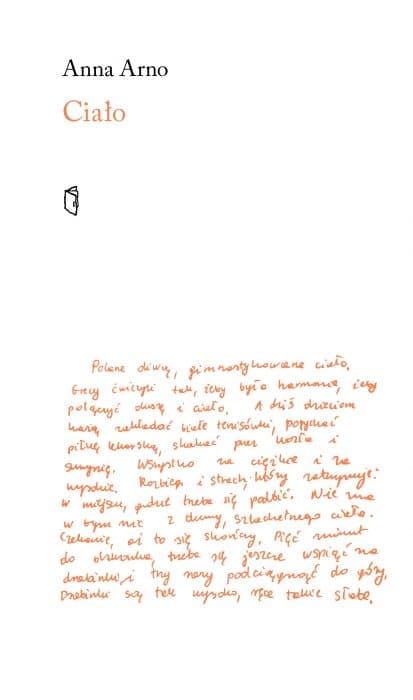 Anna Arno
Ciało
Polane oliwą, gimnastykowane ciało.
Grecy ćwiczyli tak, żeby było harmonią, żeby
połączyć duszę i ciało. A dziś dzieciom
każą zakładać białe tenisówki, popychać
piłkę lekarską, skakać przez kozła i
skrzynię. Wszystko za ciężkie i za
wysokie. Rozbieg i strach, który zatrzymuje:
w miejscu, gdzie trzeba się odbić. Nie ma
w tym nic z dumy, szlachetnego ciała.
Czekanie, aż to się skończy. Pięć minut
do dzwonka, trzeba się jeszcze wspiąć na
drabinki, i trzy razy podciągnąć do góry.
Drabinki są tak wysoko, ręce takie słabe.